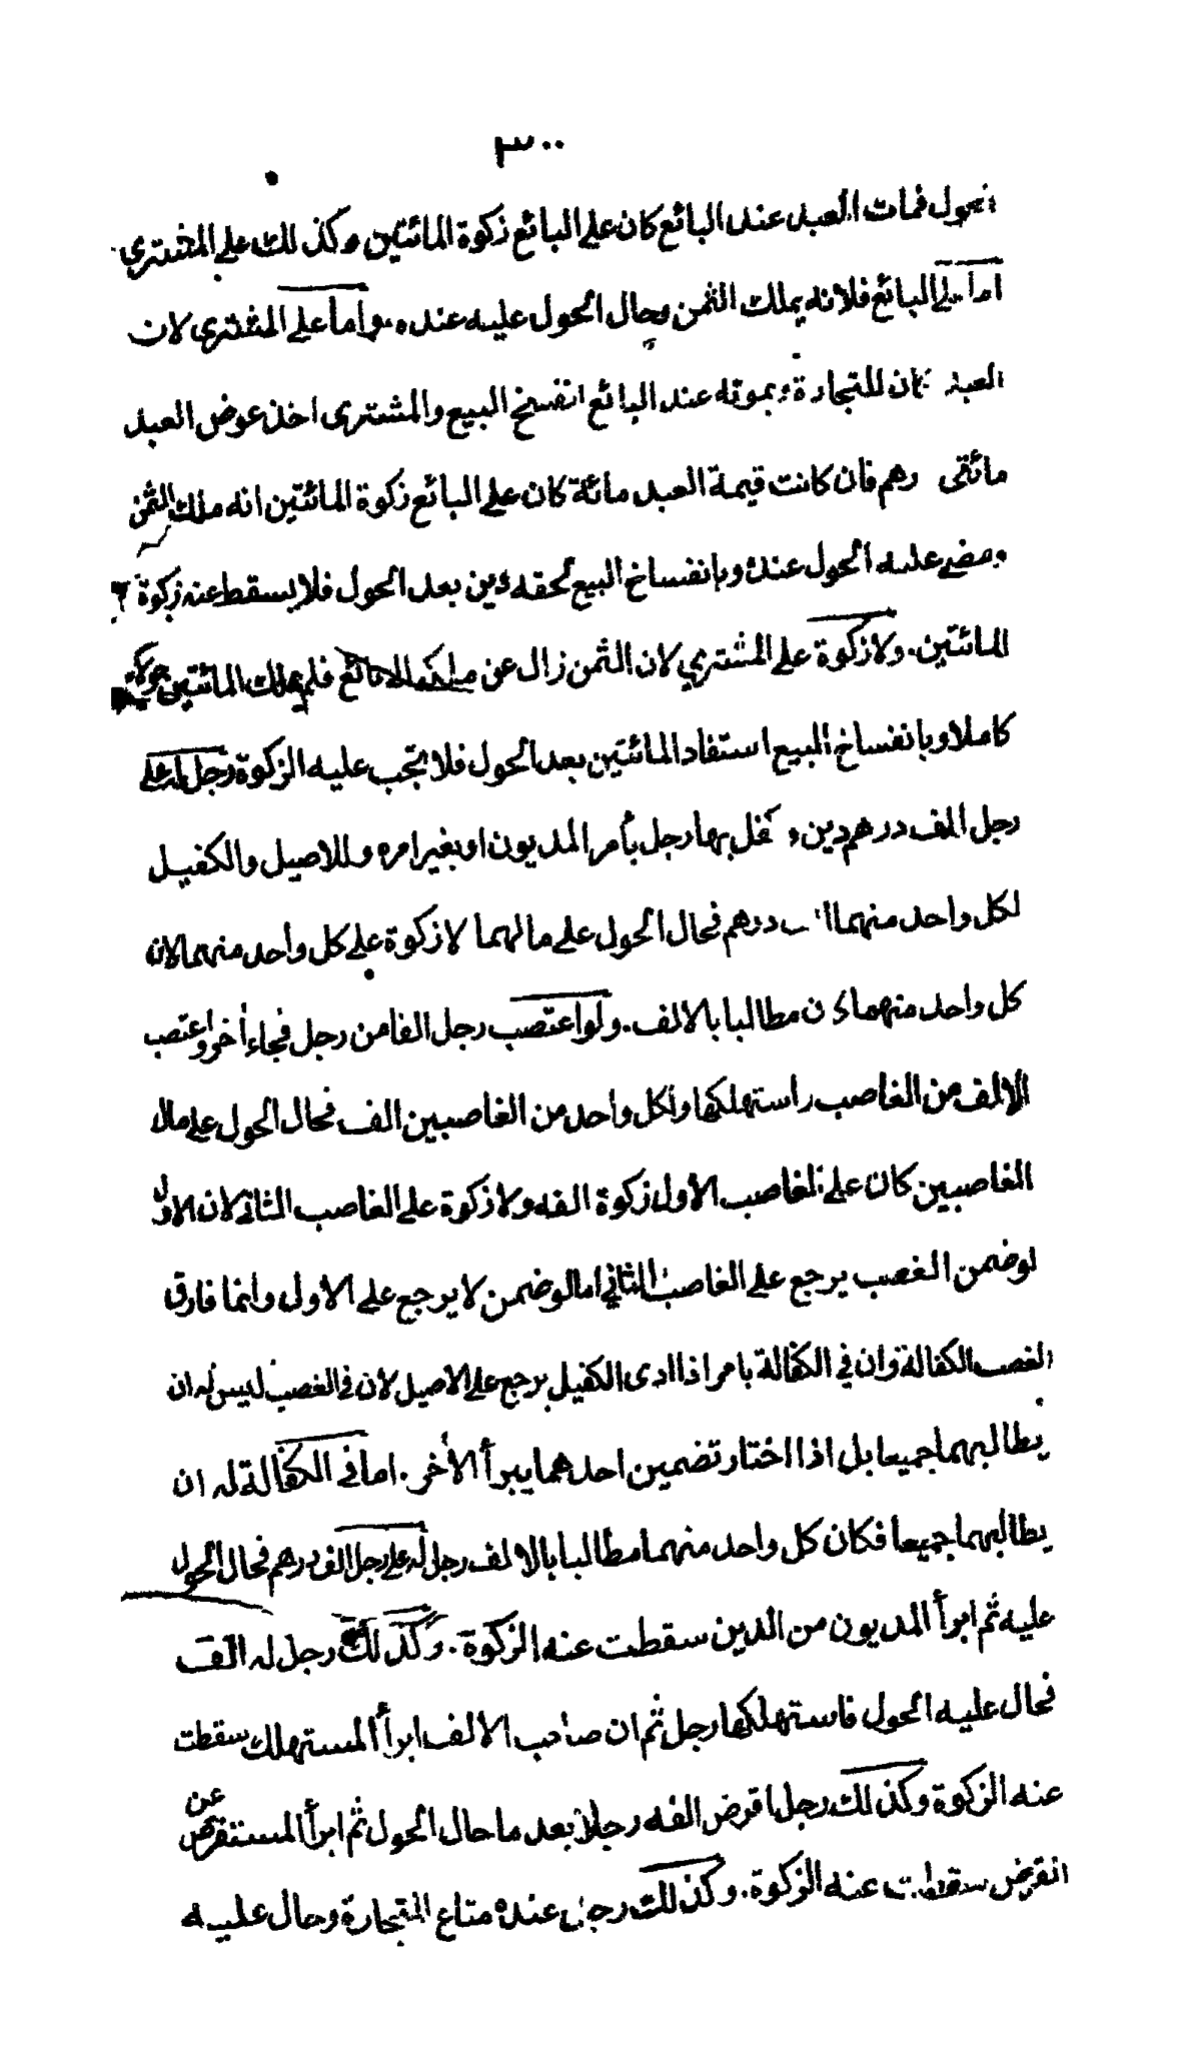 ٣٠٠
الحول فمات العبد عند البائع كان على البائع زكوة المائتين وكذلك على المشترى
اما على البائع فلانه يملك الثمن وحال الحول عليه عنده، واما على المشترى لان
العبد كان للتجارة وبموته عند البائع انفسخ البيع والمشترى اخذ عوض العبد
مائتى رهم فان كانت قيمة العبد مائة كان على البائع زكوة المائتين انه ملك الثمن
ومضى عليه الحول عنده وبانفساخ البيع لحقه دين بعد الحول فلا يسقط عنه زكوة
المائتين. ولا زكوة على المشترى لان الثمن زال عن ملكه الى البائع فلم يملك المائتين حولا
كاملا وبانفساخ البيع استفاد المائتين بعد الحول فلا تجب عليه الزكوة رجل له على
رجل الف درهم دين و كفل بها رجل بأمر المديون او بغير امره وللاصيل والكفيل
لكل واحد منهما الف درهم فحال الحول على مالهما لا زكوة على كل واحد منهما لان
كل واحد منهما كان مطالبا بالالف. ولو اغتصب رجل الفا من رجل فجاء أخر واغتصب
الالف من الغاصب واستهلكها ولكل واحد من الغاصبين الف فحال الحول على مال
الغاصبين كان على الغاصب الأول زكوة الفه ولا زكوة على الغاصب الثانى لان الاول
لو ضمن الغصب يرجع على الغاصب الثاني اما لو ضمن لا يرجع على الاول وانما فارق
الغصب الكفالة وان في الكفالة بامر اذا ادى الكفيل يرجع على الاصيل لأن فى الغصب ليس له ان
يطالبهما جميعا بل اذا اختار تضمين احدهما يبرأ الأخر. اما فى الكفالة له ان
يطالبهما جميعا فكان كل واحد منهما مطالبا بالالف رجل له على رجل الف درهم فحال الحول
عليه ثم ابرأ المديون من الدين سقطت عنه الزكوة. وكذلك رجل له الف
فحال عليه الحول فاستهلكها رجل ثم ان صاحب الالف ابرأ المستهلك سقطت
عنه الزكوة وكذلك رجل اقرض الفه رجلا بعد ما حال الحول ثم ابرأ المستقرض عن
القرض سقطت عنه الزكوة. وكذلك رجل عنده متاع للتجارة وحال عليه